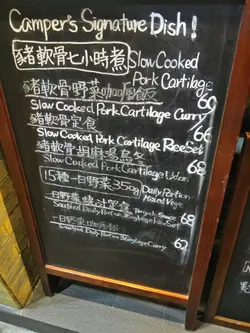 Camper's Signature Dish!
豬軟骨七小時煮 Slow Cooked Pork Cartilage
豬軟骨野菜咖喱飯 69
Slow Cooked Pork Cartilage Curry
豬軟骨定食 66
Slow Cooked Pork Cartilage Rice Set
豬軟骨胡麻烏冬 68
Slow Cooked Pork Cartilage Udon
15種一日野菜350g Daily Portion Mixed Vege
一日野菜 定食 68
Sauteed Daily
一日野菜 62
Sauteed Daily Curry